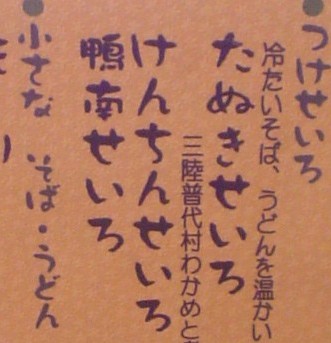 つけせいろ
冷たいそば、うどんを温かい
たぬきせいろ
三陸普代村わかめと
けんちんせいろ
鴨南せいろ
小さな そば・うどん